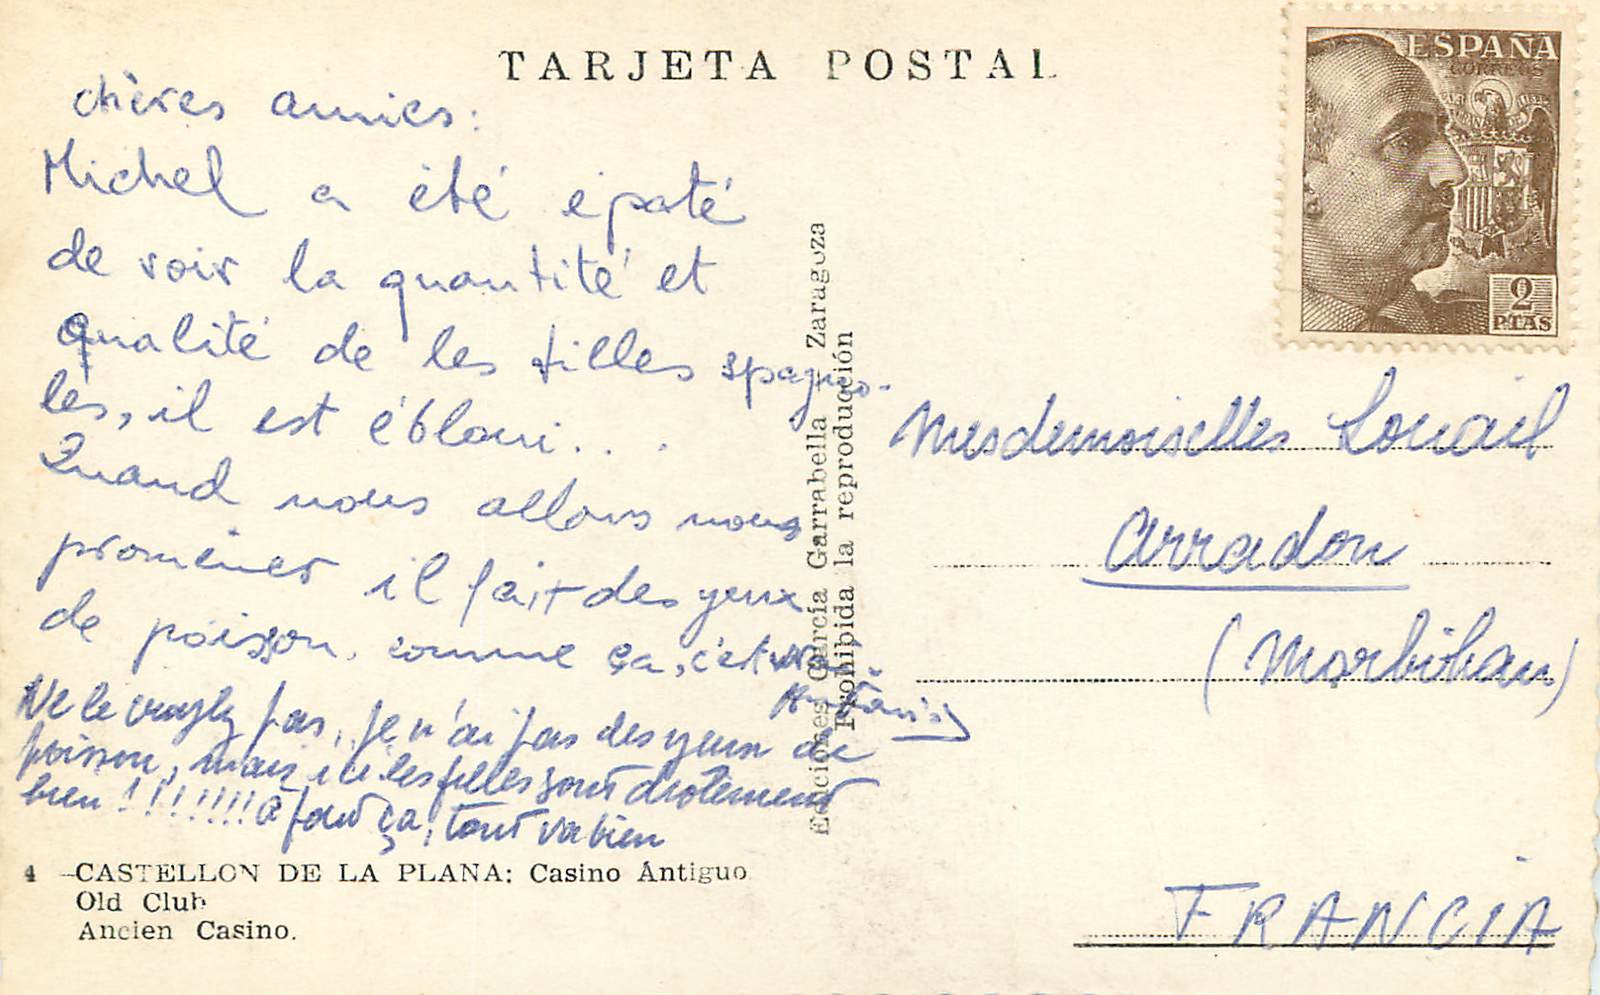 TARJETA POSTAL
chères amies:
Michel a été épaté
de voir la quantité et
qualité de les filles spagno-
les, il est ébloui...
Quand nous allons nous
promener il fait des yeux
de poisson. comme ça, c'et vrai
Ne le croyez pas, je n'ai pas des yeux de
poisson, mais ici les filles sont drolement
bien !!!!!!!! a part ça, tout va bien
4 - CASTELLON DE LA PLANA: Casino Antiguo
Old Club
Ancien Casino.
Ediciones García Garrabella - Zaragoza
Prohibida la reproducción
ESPAÑA
CORREOS
2
PTAS
Mesdemoiselles Louail
Arradon
(Morbihan)
FRANCIA